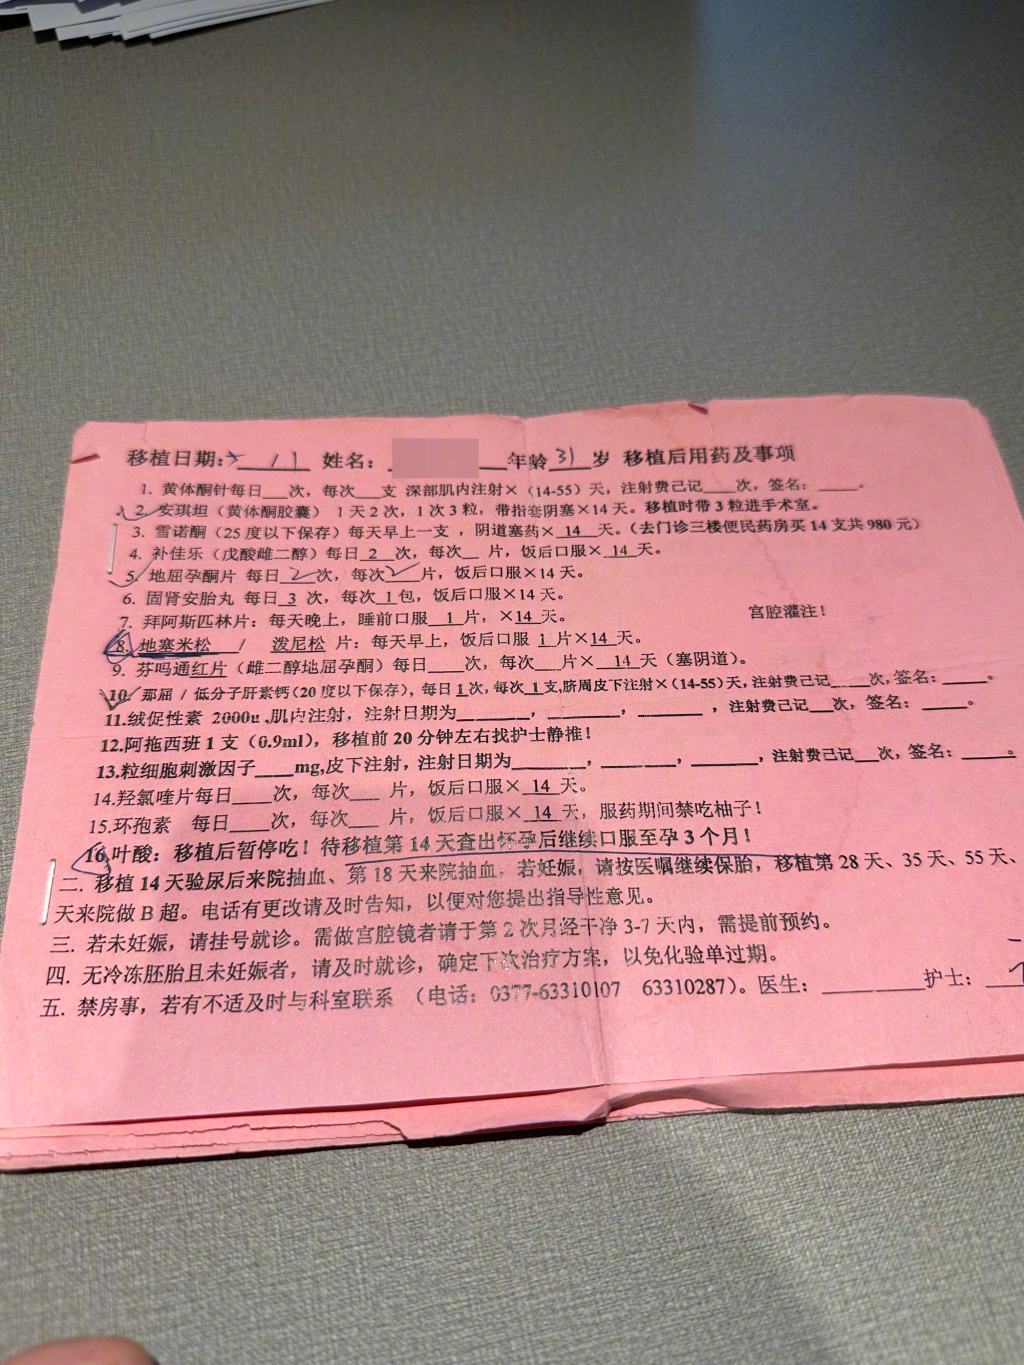 移植日期: / 1 姓名: 年龄31岁 移植后用药及事项
1. 黄体酮针每日___次，每次___支 深部肌内注射×（14-55）天，注射费已记___次，签名：____。
2. 安琪坦（黄体酮胶囊） 1天2次，1次3粒，带指套阴塞×14天。移植时带3粒进手术室。
3. 雪诺酮（25度以下保存）每天早上一支 ，阴道塞药× 14 天。（去门诊三楼便民药房买14支共980元）
4. 补佳乐（戊酸雌二醇）每日 2 次，每次__ 片，饭后口服× 14 天。
5. 地屈孕酮片 每日 2 次，每次 片，饭后口服×14天。
6. 固肾安胎丸 每日 3 次，每次 1 包，饭后口服×14天。
7. 拜阿斯匹林片：每天晚上，睡前口服 1 片，× 14 天。 宫腔灌注！
8. 地塞米松 / 泼尼松 片：每天早上，饭后口服 1 片× 14 天。
9. 芬吗通红片（雌二醇地屈孕酮）每日___次，每次___片× 14 天（塞阴道）。
10. 那屈 / 低分子肝素钙(20度以下保存)，每日 1 次，每次 1 支,脐周皮下注射×(14-55)天，注射费已记____次，签名：____。
11.绒促性素 2000u ,肌内注射，注射日期为______，______，______ ，注射费已记__次，签名：____。
12.阿拖西班1支（0.9ml），移植前20分钟左右找护士静推！
13.粒细胞刺激因子___mg,皮下注射，注射日期为______，______，______，注射费已记__次，签名：____。
14.羟氯喹片每日___次，每次___ 片，饭后口服× 14 天。
15.环孢素 每日___次，每次___ 片，饭后口服× 14 天，服药期间禁吃柚子！
16.叶酸：移植后暂停吃！待移植第14天查出怀孕后继续口服至孕3个月！
二. 移植14天验尿后来院抽血、第18天来院抽血。若妊娠，请按医嘱继续保胎，移植第28天、35天、55天、
天来院做B超。电话有更改请及时告知，以便对您提出指导性意见。
三. 若未妊娠，请挂号就诊。需做宫腔镜者请于第2次月经干净3-7天内，需提前预约。
四. 无冷冻胚胎且未妊娠者，请及时就诊，确定下次治疗方案，以免化验单过期。
五. 禁房事，若有不适及时与科室联系 （电话：0377-63310107 63310287）。医生：________护士：